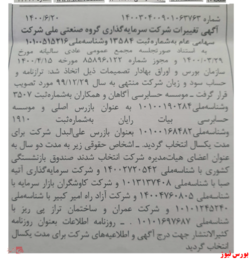 شماره ۱۴۰۰۳۰۴۰۰۹۰۱۰۶۳۷۶۳ ۱۴۰۰/۶/۲۰
آگهی تغییرات شرکت سرمایه‌گذاری گروه صنعتی ملی شرکت
سهامی عام به‌شماره‌ثبت ۱۳۵۸۴ وشناسه‌ملی ۱۰۱۰۰۵۱۵۲۱۶
به استناد صورتجلسه مجمع عمومی عادی سالیانه مورخ
۱۴۰۰/۰۳/۲۹ و مجوز شماره ۸۵۸۹۶،۱۲۲ مورخه ۱۴۰۰/۴/۱۵
سازمان بورس و اوراق بهادار تصمیمات ذیل اتخاذ شد: ترازنامه و
حساب سود و زیان شرکت منتهی به سال ۹۹/۱۲/۲۹ مورد تصویب
قرار گرفت. موسسه حسابرسی آگاهان و همکاران به‌شماره‌ثبت ۳۵۰۷
و شناسه‌ملی ۱۰۱۰۰۱۹۰۲۸۴ به‌عنوان بازرس اصلی و موسسه
حسابرسی بیات رایان به‌شماره‌ثبت ۱۹۱۰
وشناسه‌ملی ۱۰۱۰۰۱۶۸۴۸۳ به‌عنوان بازرس علی‌البدل شرکت برای
مدت یکسال انتخاب گردیدند. اشخاص حقوقی زیر به مدت دو سال به
عنوان اعضای هیات‌مدیره شرکت انتخاب شدند صندوق بازنشستگی
کشوری با شناسه‌ملی ۱۴۰۰۰۲۷۲۵۴۲ شرکت سرمایه‌گذاری آتیه
صبا با شناسه‌ملی ۱۰۱۰۳۱۳۷۴۰۸ و شرکت کاوشگران بازار سرمایه با
شناسه‌ملی ۱۴۰۰۴۷۶۸۰۵ و شرکت آزاد راه امیر کبیر با شناسه‌ملی
۱۰۱۰۱۲۴۵۲۴۰ و شرکت عمران و ساختمان تراز پی ریز با
شناسه‌ملی ۱۰۱۰۱۶۹۷۶۸۷ - روزنامه اطلاعات بعنوان روزنامه
کثیرالانتشار جهت درج آگهی و اطلاعیه‌های شرکت برای مدت یکسال
انتخاب گردید
بورس نیوز